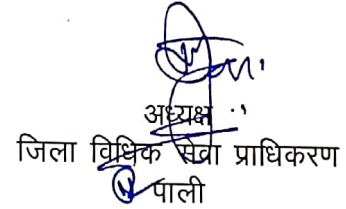 अध्यक्ष
जिला विधिक सेवा प्राधिकरण
पाली